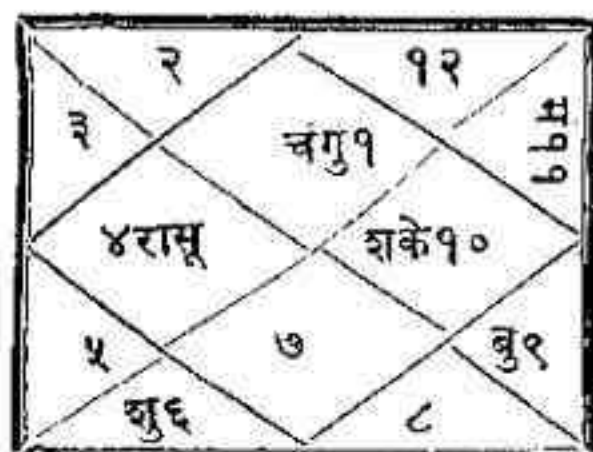 २ १२
३ चंगु१ म११
४रासू शके१०
५ ७ बु९
शु६ ८